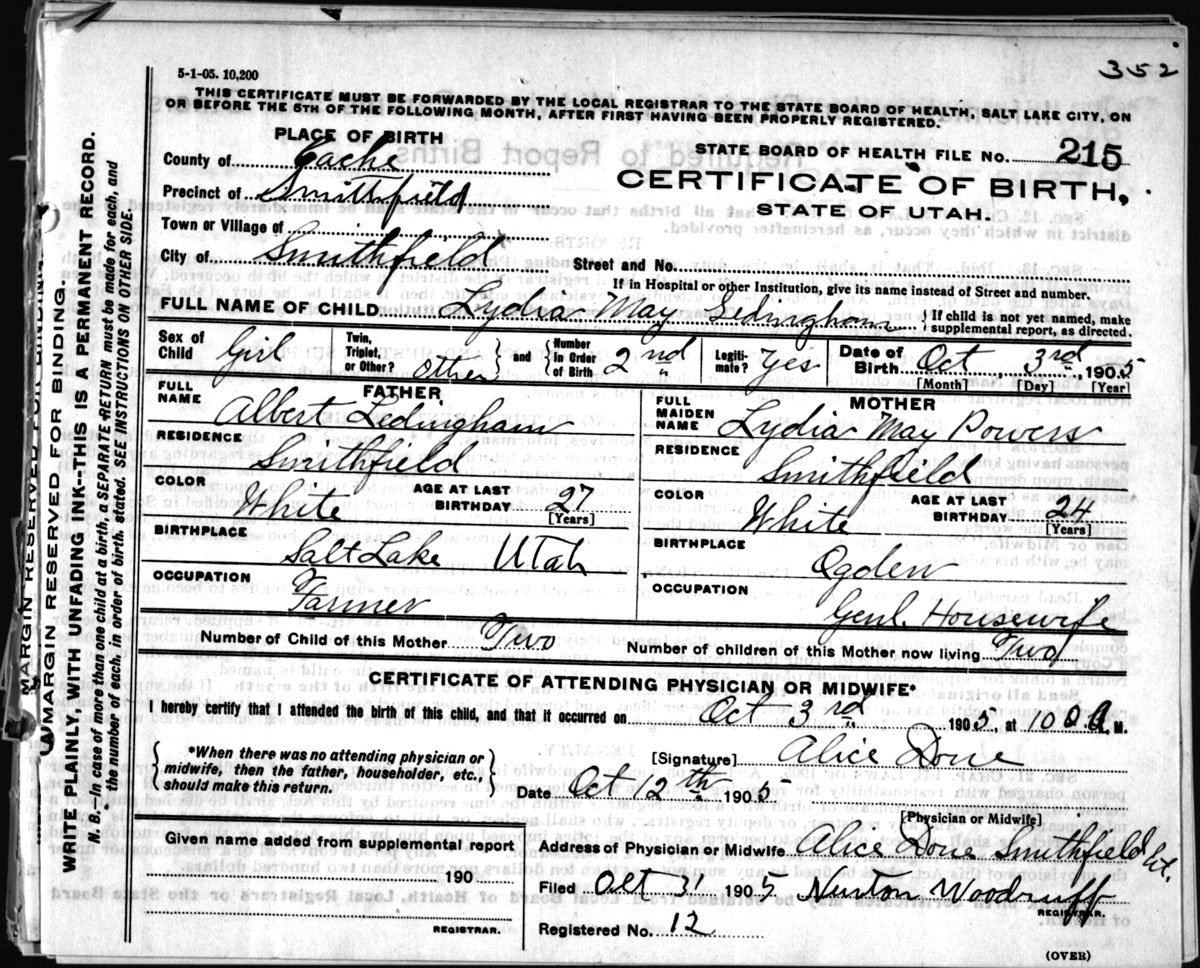 352
5-1-05. 10,200
THIS CERTIFICATE MUST BE FORWARDED BY THE LOCAL REGISTRAR TO THE STATE BOARD OF HEALTH, SALT LAKE CITY, ON
OR BEFORE THE 5TH OF THE FOLLOWING MONTH, AFTER FIRST HAVING BEEN PROPERLY REGISTERED.
PLACE OF BIRTH
County of Cache
Precinct of Smithfield
Town or Village of
City of Smithfield
STATE BOARD OF HEALTH FILE NO. 215
CERTIFICATE OF BIRTH,
STATE OF UTAH.
Street and No.
If in Hospital or other Institution, give its name instead of Street and number.
FULL NAME OF CHILD Lydia May Ledingham } If child is not yet named, make
supplemental report, as directed.
Sex of Child Girl Twin, Triplet, or Other? Other } and { Number in Order of Birth 2nd Legiti- mate? Yes Date of Birth Oct 3rd, 1905
[Month] [Day] [Year]
FATHER
FULL NAME Albert Ledingham
RESIDENCE
Smithfield
COLOR White AGE AT LAST BIRTHDAY 27
[Years]
BIRTHPLACE
Salt Lake Utah
OCCUPATION
Farmer
MOTHER
FULL MAIDEN NAME Lydia May Powers
RESIDENCE
Smithfield
COLOR White AGE AT LAST BIRTHDAY 24
[Years]
BIRTHPLACE
Ogden
OCCUPATION
Genl. Housewife
Number of Child of this Mother Two Number of children of this Mother now living Two
CERTIFICATE OF ATTENDING PHYSICIAN OR MIDWIFE*
I hereby certify that I attended the birth of this child, and that it occurred on Oct 3rd 1905, at 10 A. M.
{ *When there was no attending physician or
midwife, then the father, householder, etc.,
should make this return. }
[Signature] Alice Done
Date Oct 12th 1905
[Physician or Midwife]
Given name added from supplemental report
190
REGISTRAR.
Address of Physician or Midwife Alice Done Smithfield Ut.
Filed Oct 31 1905 Newton Woodruff
REGISTRAR.
Registered No. 12
(OVER)
MARGIN RESERVED FOR BINDING.
MARGIN RESERVED FOR BINDING.
WRITE PLAINLY, WITH UNFADING INK--THIS IS A PERMANENT RECORD.
N. B.--In case of more than one child at a birth, a SEPARATE RETURN must be made for each, and
the number of each, in order of birth, stated. SEE INSTRUCTIONS ON OTHER SIDE.